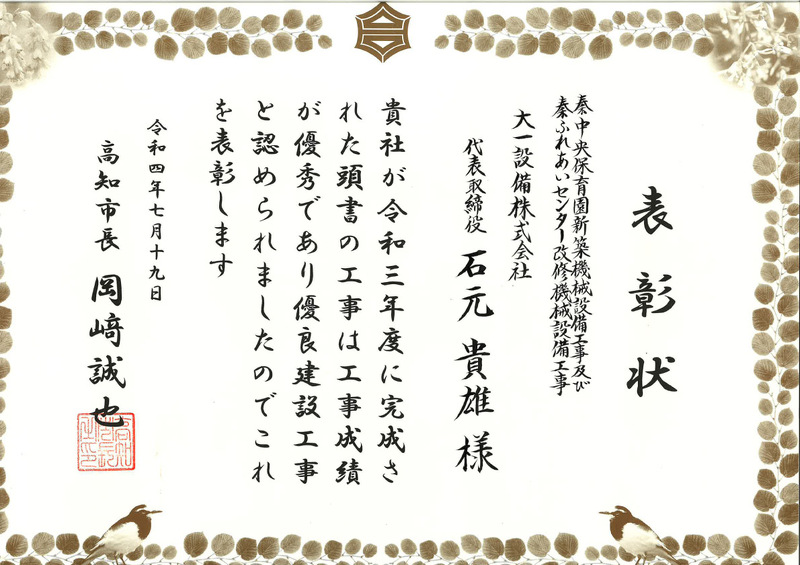 表彰状
秦中央保育園新築機械設備工事及び
秦ふれあいセンター改修機械設備工事
大一設備株式会社
代表取締役 石元貴雄様
貴社が令和三年度に完成さ
れた頭書の工事は工事成績
が優秀であり優良建設工事
と認められましたのでこれ
を表彰します
令和四年七月十九日
高知市長 岡﨑誠也